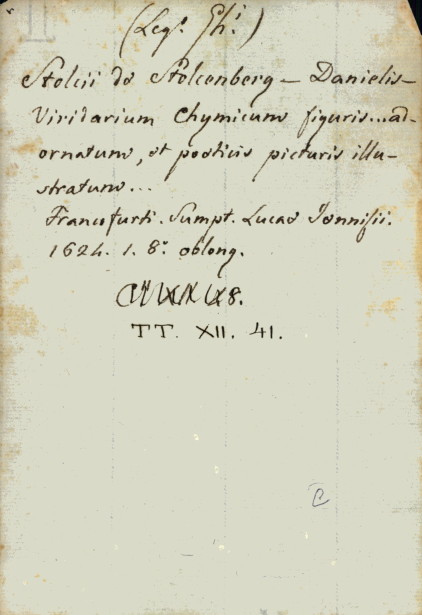 (Leg. Gh.)
Stolcii de Stolcenberg – Danielis –
Viridarium Chymicum figuris... ad-
ornatum, et poeticis picturis illu-
stratum...
Francofurti. Sumpt. Lucae Jennisii.
1624. 1. 8° oblong.
TT. XII. 41.
C